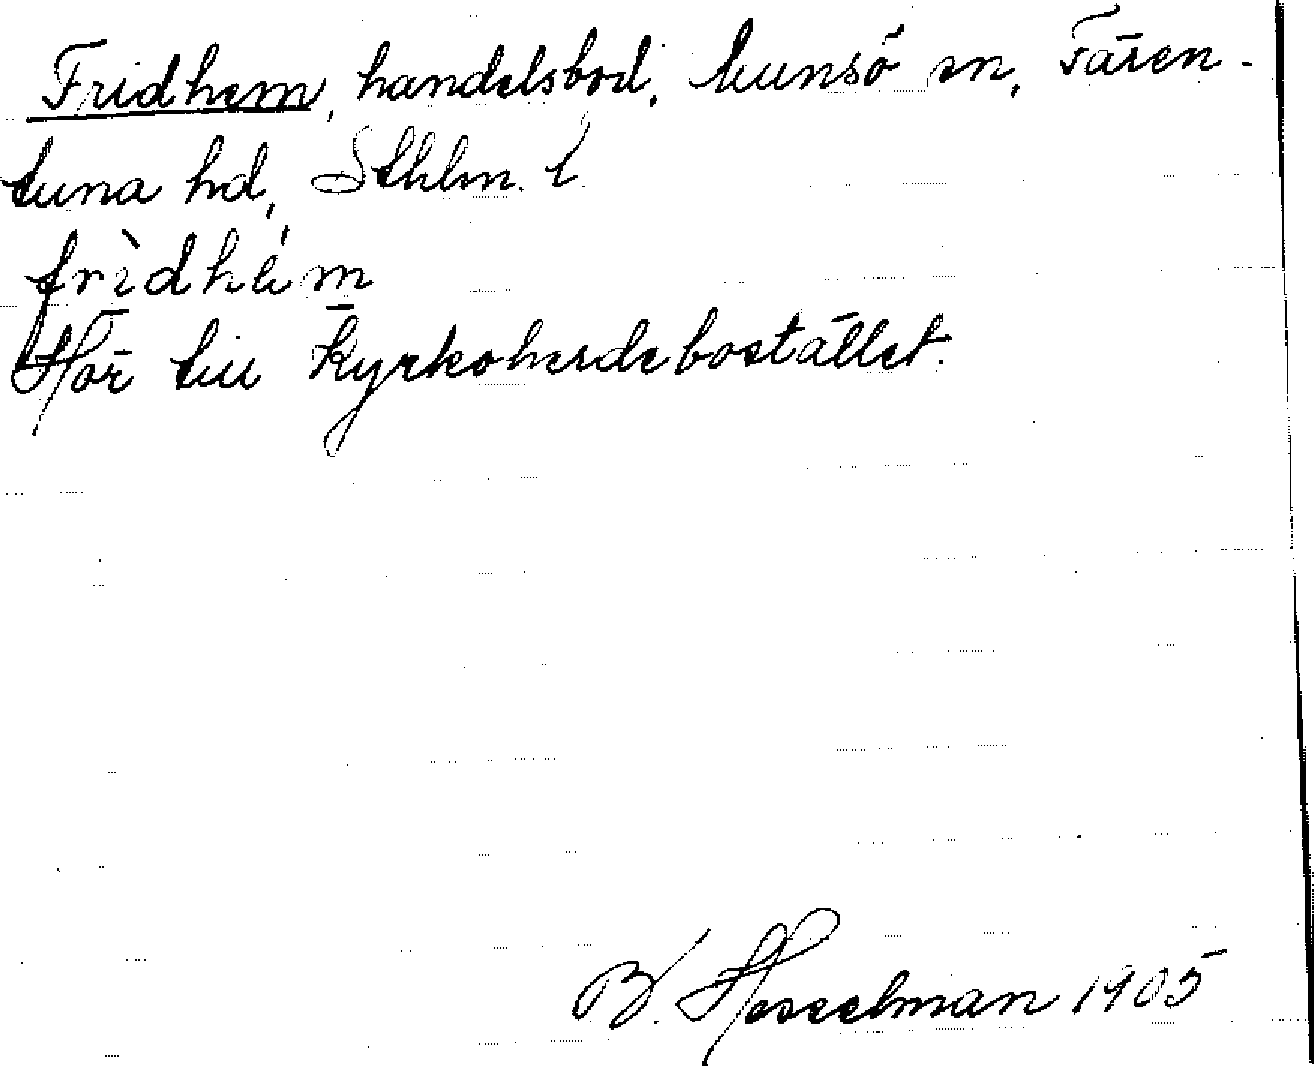 Fridhem, handelsbod, Munsö sn, Fären-
tuna hd, Sthlm. l
frìdhém
Hör till Kyrkoherdebostället.
B. Hesselman 1905